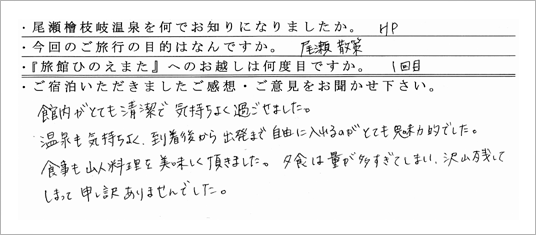 ・尾瀬檜枝岐温泉を何でお知りになりましたか。 HP
・今回のご旅行の目的はなんですか。 尾瀬散策
・『旅館ひのえまた』へのお越しは何度目ですか。 1回目
・ご宿泊いただきましたご感想・ご意見をお聞かせ下さい。
館内がとても清潔で気持ちよく過ごせました。
温泉も気持ちよく、到着後から出発まで自由に入れるのがとても魅力的でした。
食事も山人料理を美味しく頂きました。 夕食は量が多すぎてしまい、沢山残して
しまって申し訳ありませんでした。